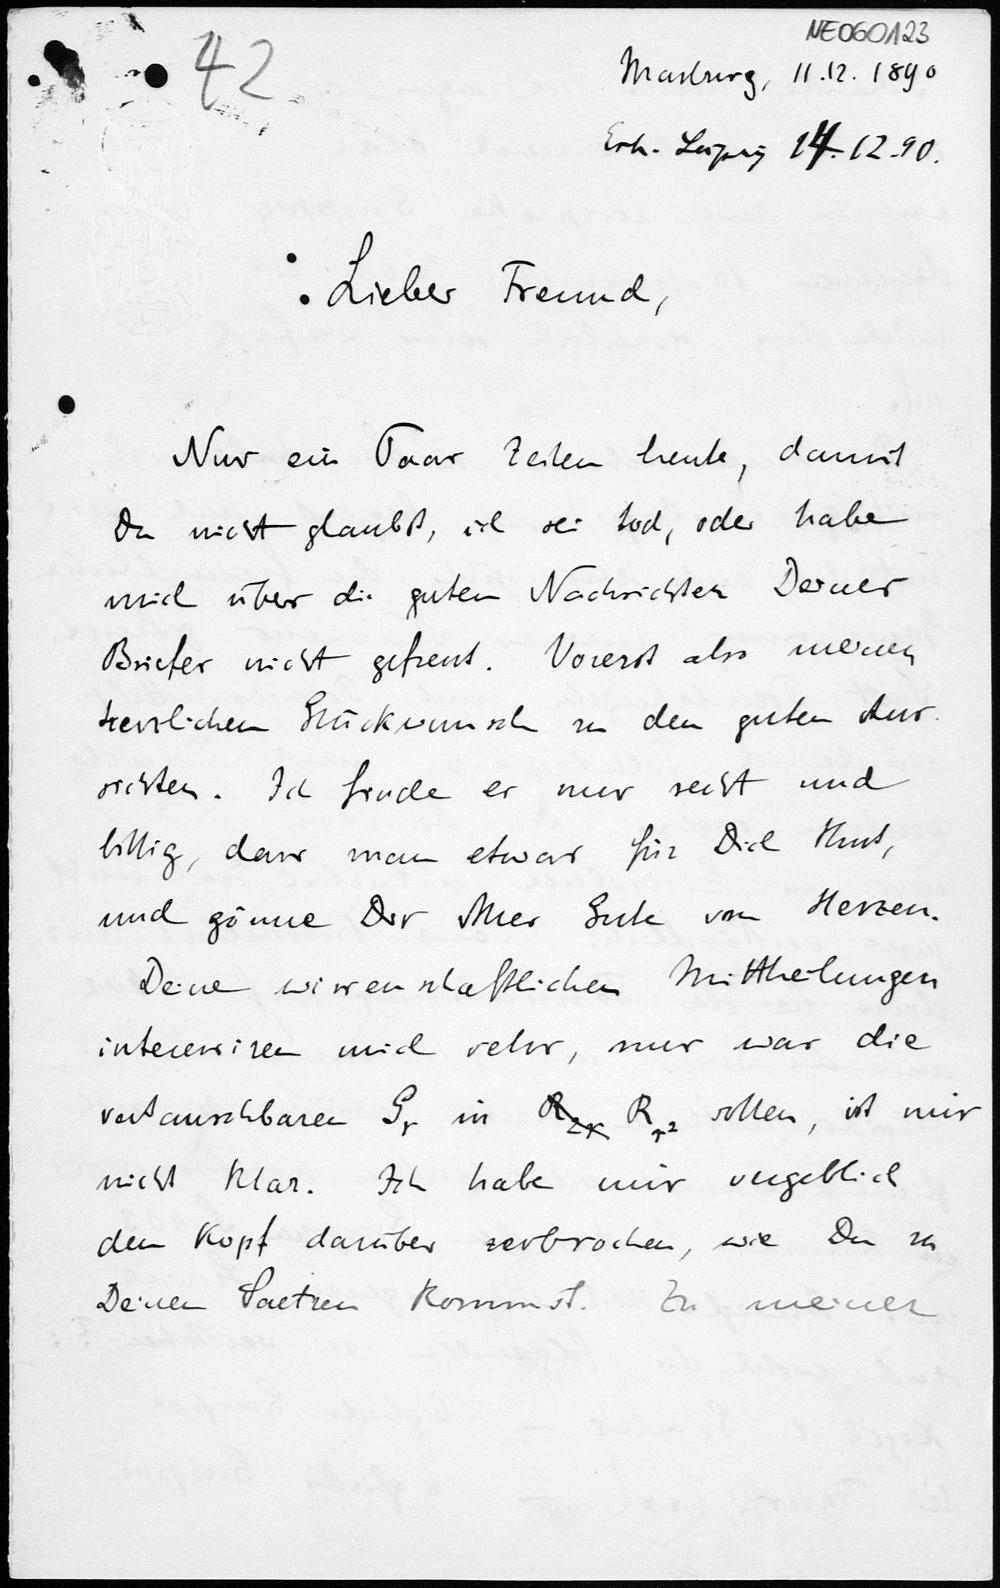 NE060123
42
Marburg, 11.12.1890
Erh. Leipzig 14.12.90.
Lieber Freund,
Nur ein Paar Zeilen heute, damit
Du nicht glaubst, ich sei tod, oder habe
mich über die guten Nachrichten Deines
Briefes nicht gefreut. Vorerst also meinen
herzlichen Glückwunsch zu den guten Aus-
sichten. Ich finde es nur recht und
billig, dass man etwas für Dich thut,
und gönne Dir Alles Gute von Herzen.
Deine wissenschaftlichen Mittheilungen
interessiren mich sehr, nur was die
vertauschbaren Gr in R2r Rr² sollen, ist mir
nicht klar. Ich habe mir vergeblich
den Kopf darüber zerbrochen, wie Du zu
Deinen Saetzen kommst. Zu meiner